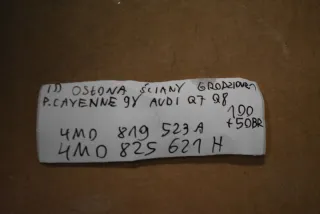 1) OSŁONA ŚCIANY GRODZIOWEJ
P.CAYENNE 9Y AUDI Q7 Q8
100
4M0 819 523 A +50BR
4M0 825 621 H